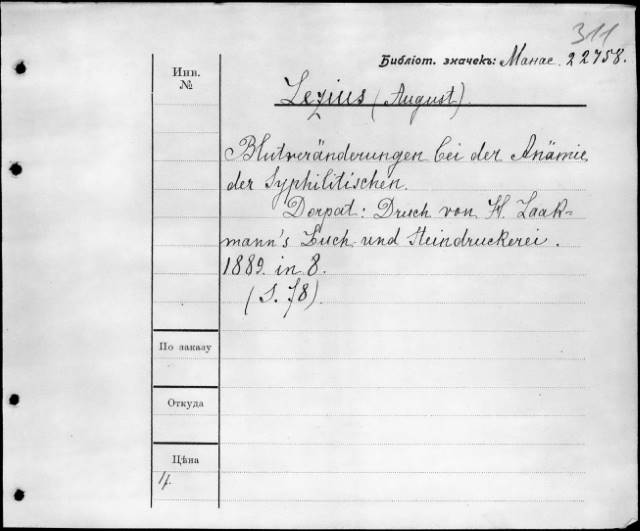 311
Библіот. значекъ: Манас. 22758.
Инв.
№
Lezius (August).
Blutveränderungen bei der Anämie
der Syphilitischen.
Dorpat: Druch von H. Laak-
mann's Buch und Steindruckerei.
1889. in 8.
(S. 78).
По заказу
Откуда
Цѣна